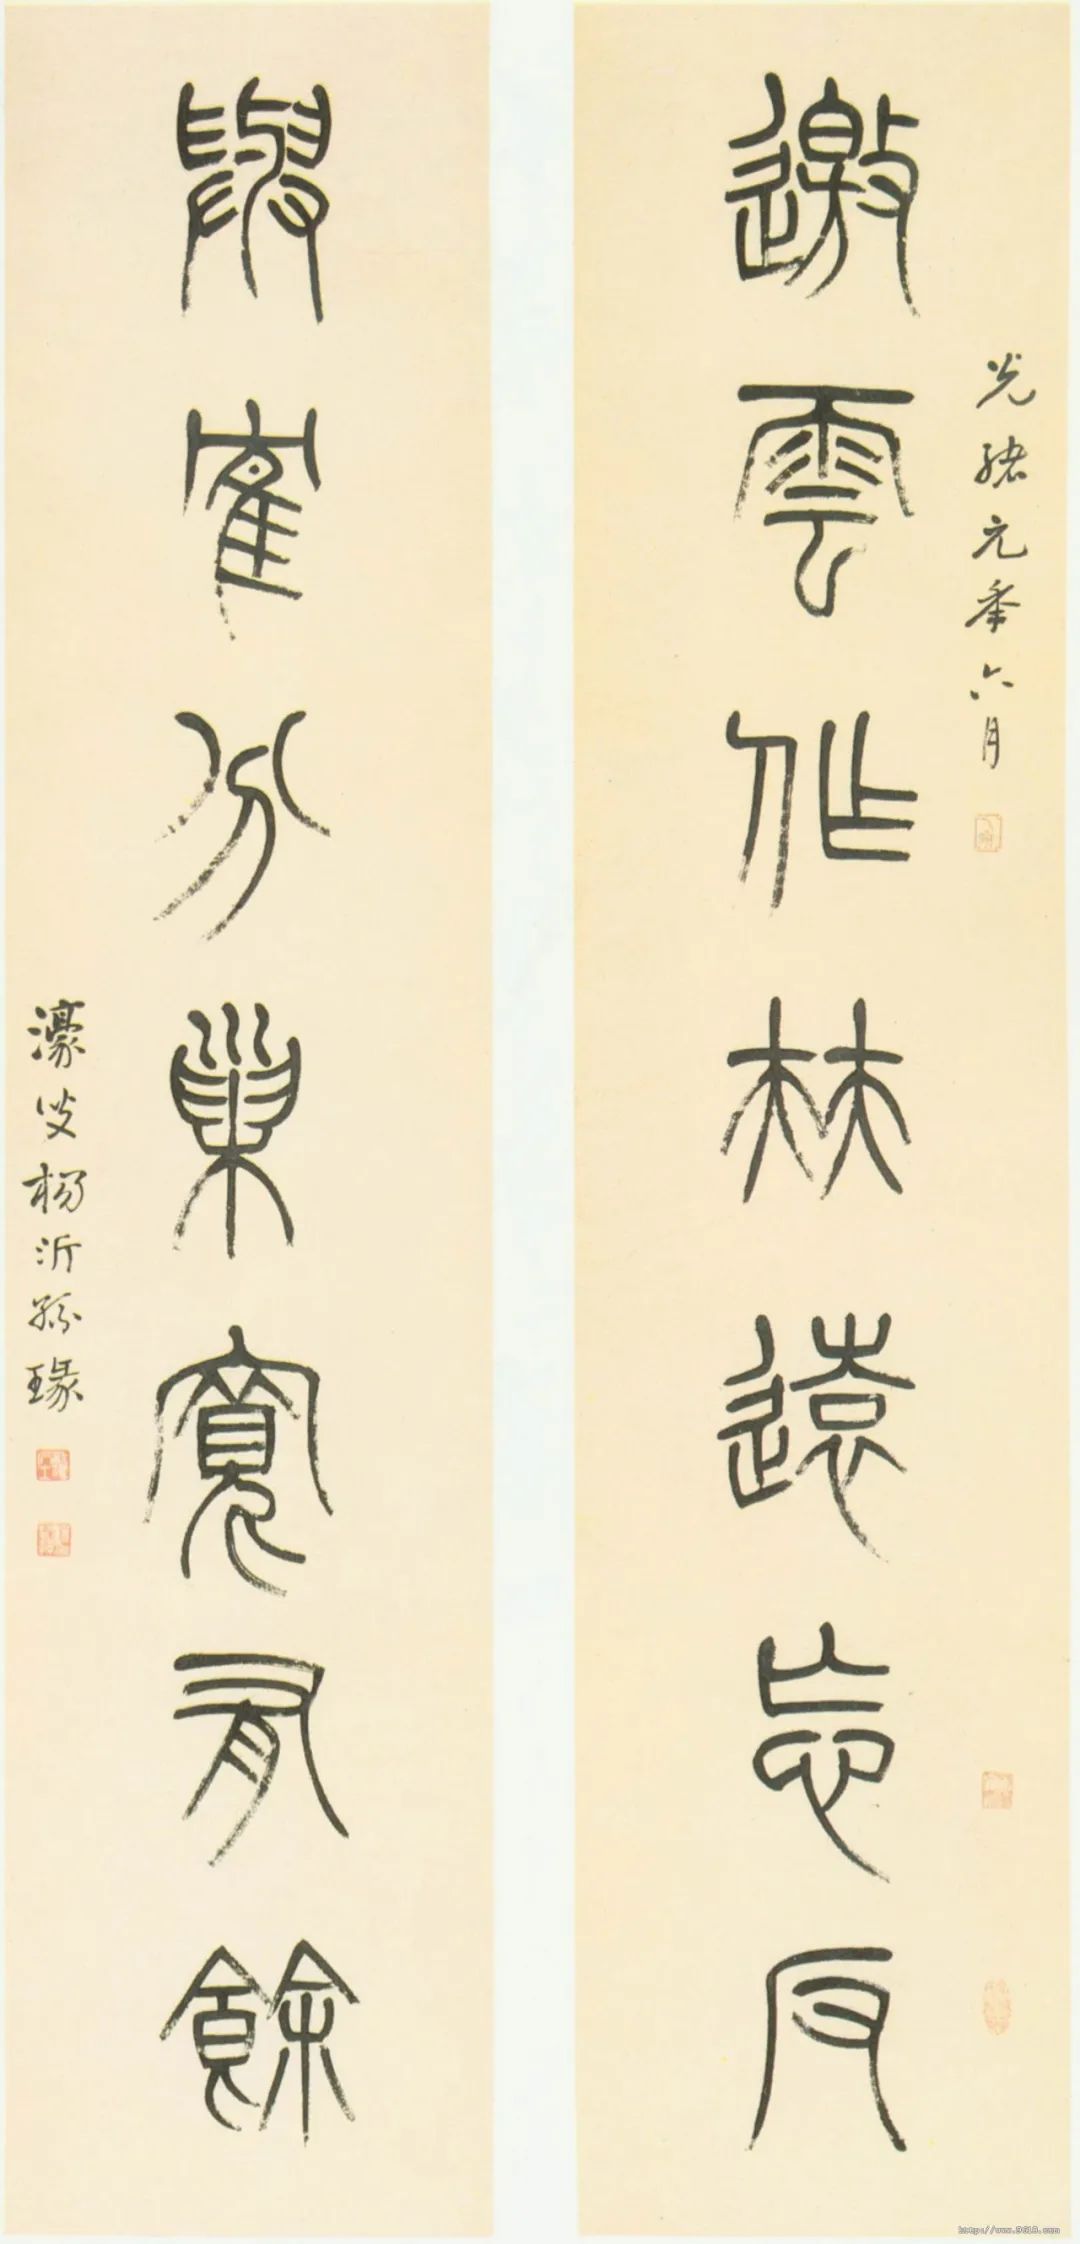 邀雲作㚘遠忘反
光緒元年六月
與隺分巢寬有餘
濠叟楊沂孫瑑
http://www.9610.com